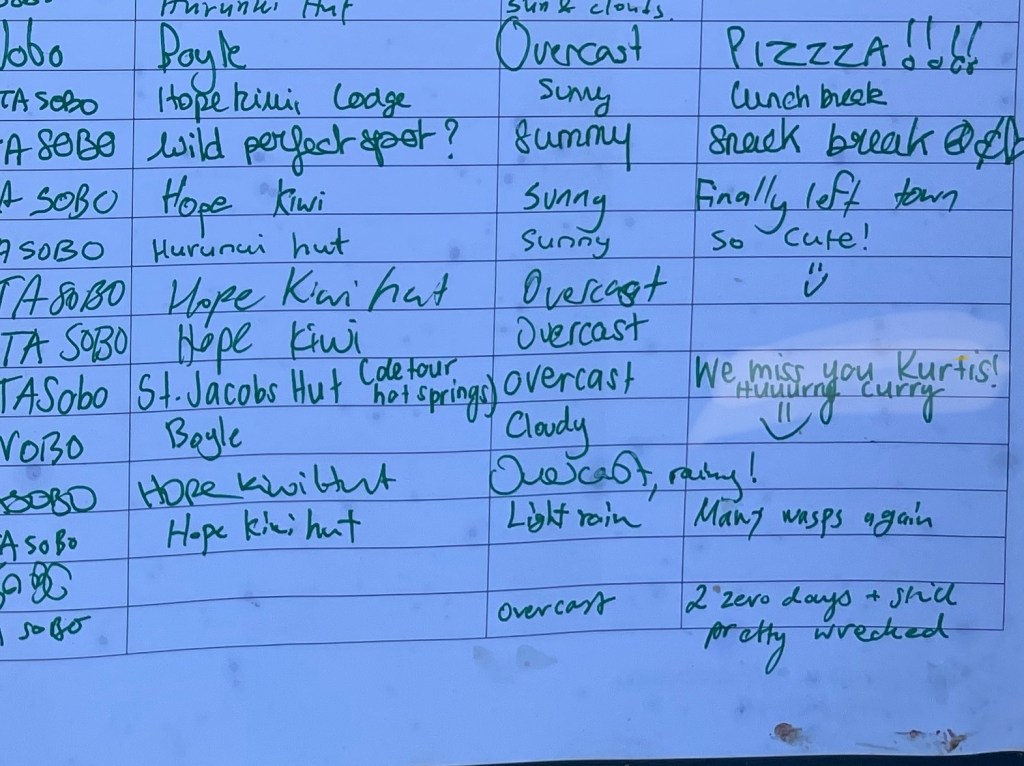 Hurunui Hut sun & clouds.
Jobo Boyle Overcast PIZZZA!!!!
TA SOBO Hope kiwi Lodge Sunny Lunch break
A SOBO Wild perfect spot? Summy Snack break
A SOBO Hope Kiwi Sunny Finally left town
A SOBO Hurunui hut Sunny So cute!
TA SOBO Hope Kiwi hut Overcast
TA SOBO Hope Kiwi Overcast
TASobo St. Jacobs Hut (detour hot springs) overcast We miss you Kurtis!
Huuurng Curry
NOBO Boyle Cloudy
SOBO Hope kiwi Hut Overcast, rainy!
A SOBO Hope kiwi hut Light rain Many wasps again
SOBO overcast 2 zero days + still
pretty wrecked